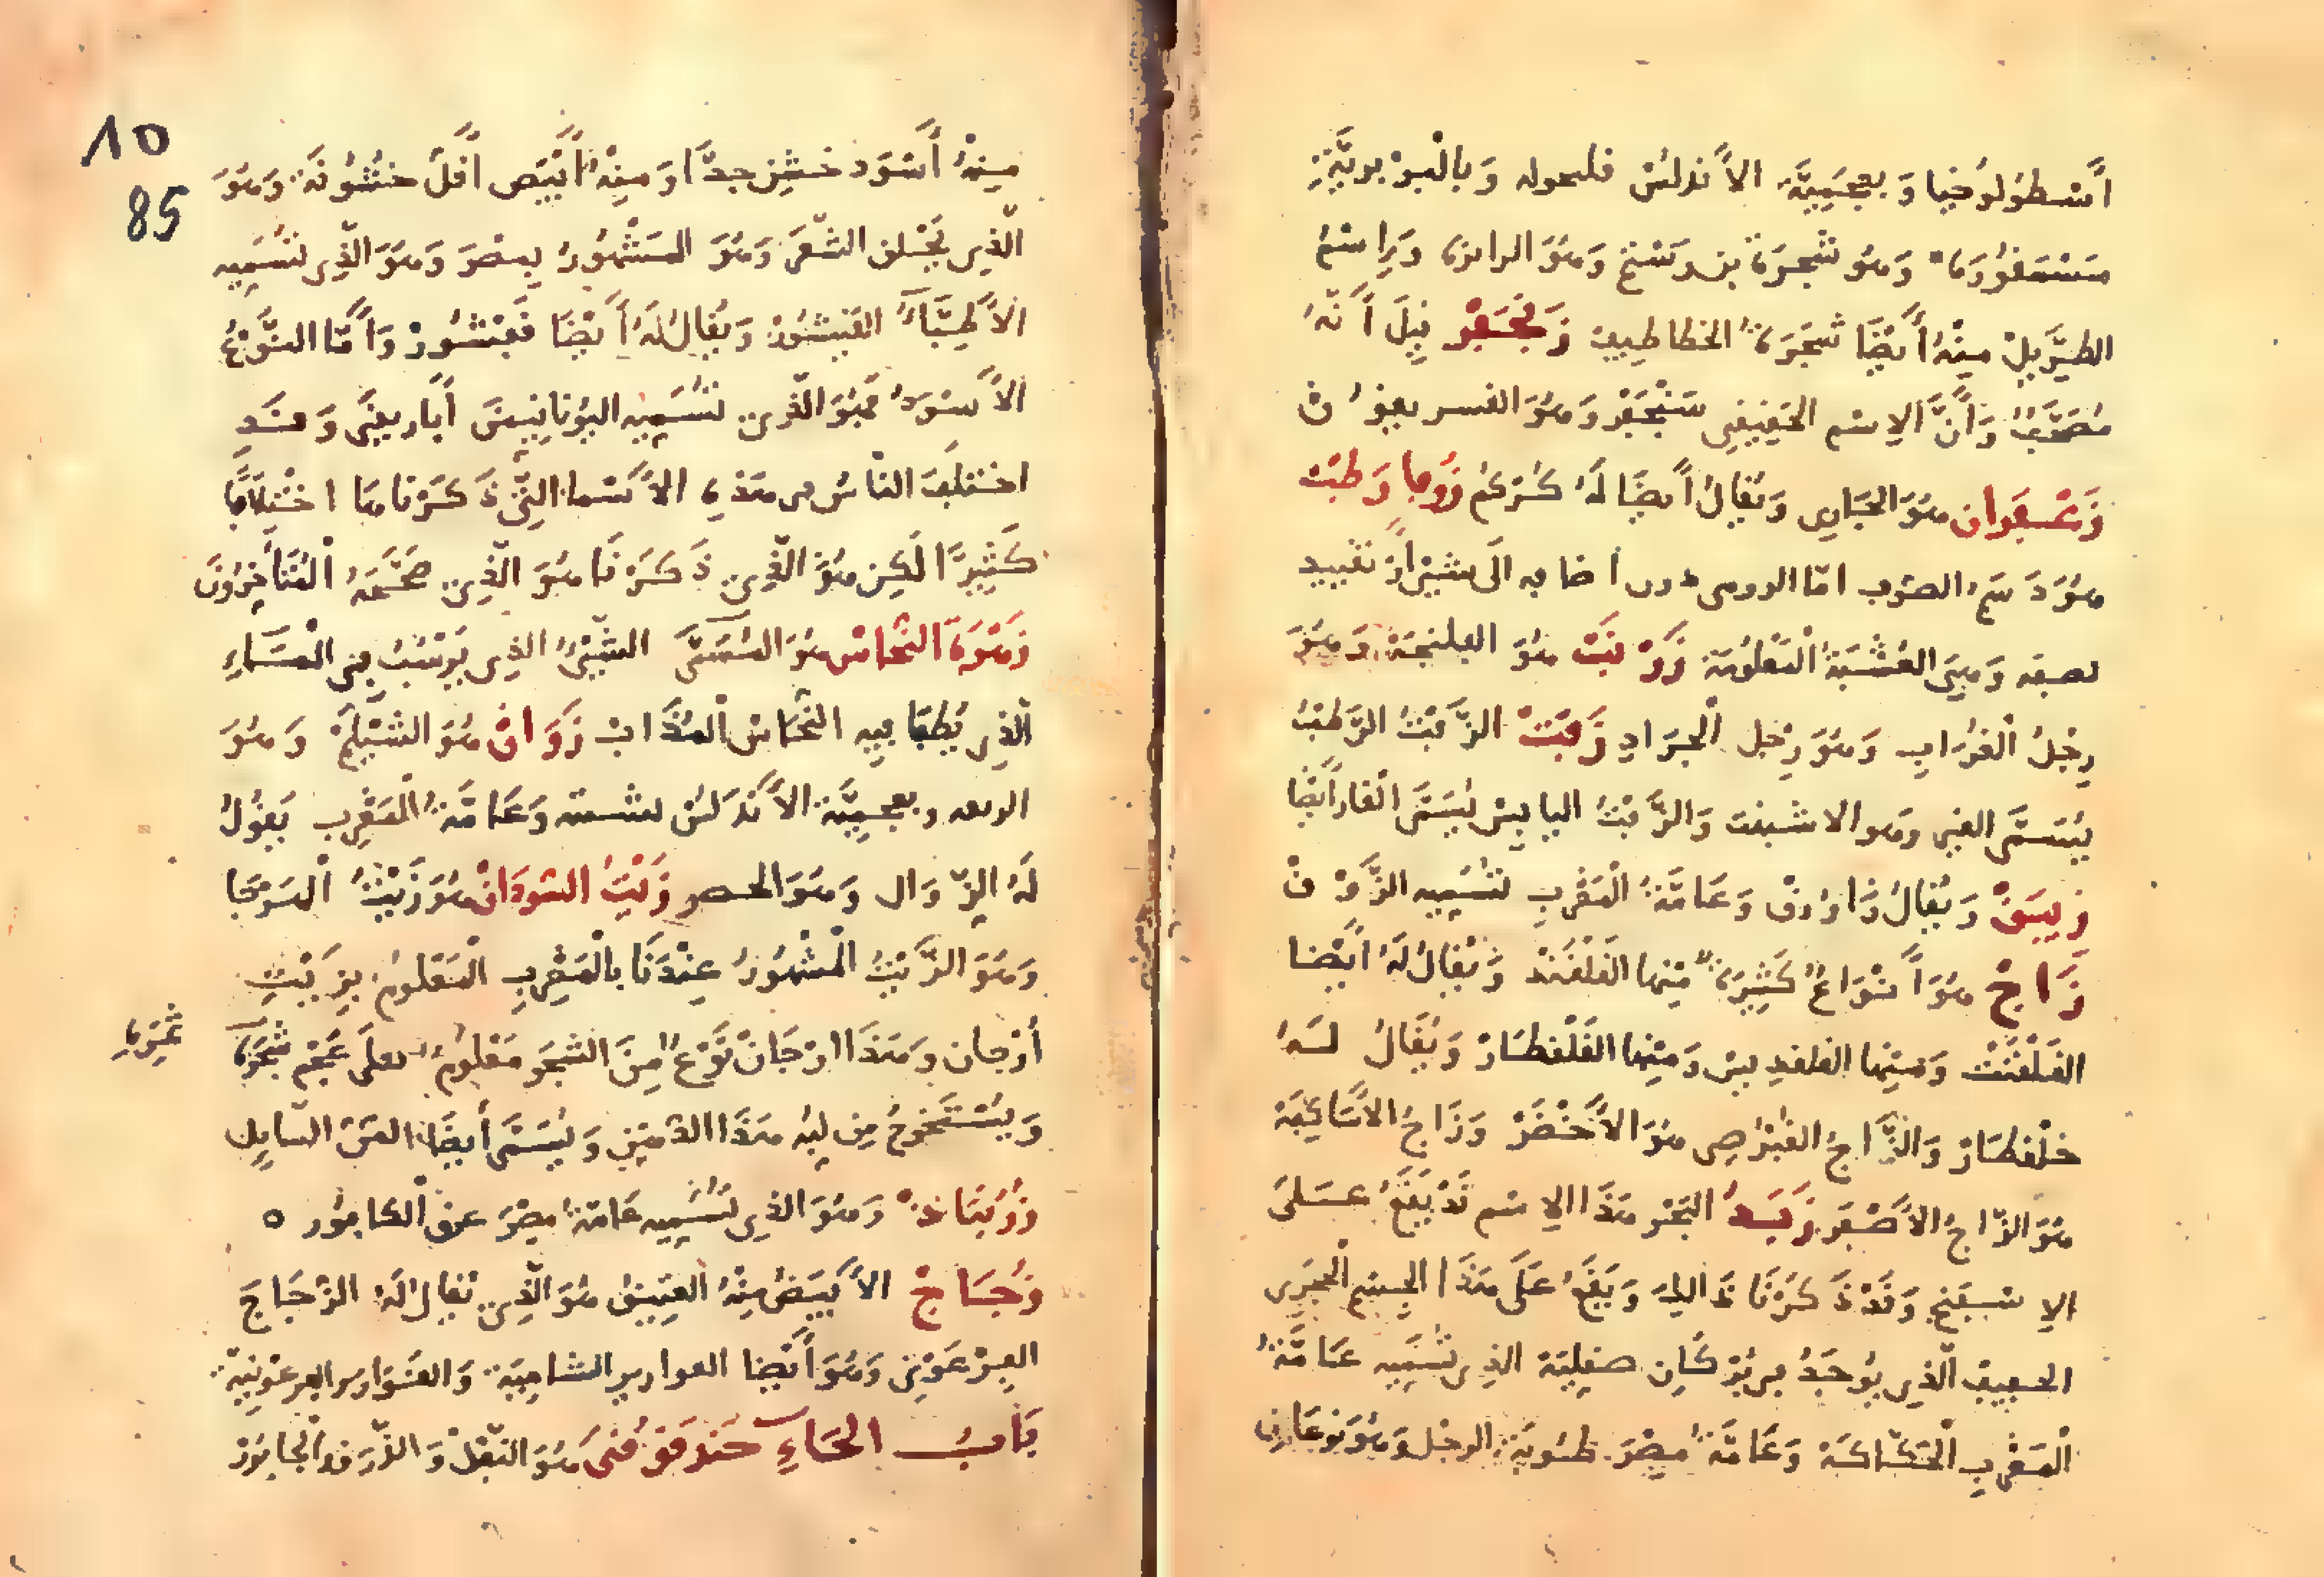 أَسْطُولُوخِيا وَبعجَمِيَّة الأَنْدَلُسْ وَبِالْبَرْبَرِيَّةِ
وَهُوَ شَجَرَة بن رُسْتُم وَهُوَ الرازن وَرِاسْمُ
الطَّوِيلْ مِنْهُ أَيْضًا شَجَرَةُ الخطاطِيف زَنْجَفْر قِيلَ أَنَّهُ
مُصَحَّفٌ وَأَنَّ الاِسْم الحَقِيقِي سَنْجَفْر وَهُوَ
زَعْفَرَان هُوَ الجَادِي وَيُقَالُ أَيْضًا لَهُ كُرْكُمْ زُوفا رَطْبَة
هُوَ دَسَمُ الصُوف امّا الرومى اضافه الَى شَيْئ أَوْ تَقْيِيد
بصفه وَهِيَ العُشْبَةُ الْمَعْلُومَة زَرْنَبْ هُوَ الفلنجَة وَهُوَ
رِجْلُ الْغُرَابِ وَهُوَ رِجْل الْجَرَادِ زَفْتْ الزّفْتُ الرّطْبُ
يُسَمَّى القِير وَهو الاشبفت وَالزّفْتُ اليابِسْ يُسَمَّى الْقار أَيْضًا
زِيبَقْ وَيُقَالُ زَاوُوق وَعَامَّةُ الْمَغْرِبِ تُسَمِّيهِ الزَّوْقْ
زَاجْ هُوَ أَنْوَاعٌ كَثِيرَةٌ مِنْها القَلْقَنْد وَيُقَالُ لَهُ أَيْضًا
القَلْقَنْتْ وَمِنْها القلقدِيسْ وَمِنْها القَلْقطَارْ وَيُقَالُ لَهُ
خلْقطَارْ وَالزَّاجُ القُبْرُصِي هُوَ الأَخْضَرْ وَزَاجُ الأَسَاكِفَة
هُوَ الزّاجُ الأَصْفَر زَبَدُ البَحْر هَذَا الاِسْم قَدْ يَقَعُ عَلَى
الاِسْفَنْج وَقَدْ ذَكَرْنَا ذَالِكَ وَيَقَعُ عَلَى هَذَا الجِسْم الْحَجَرِي
الخفيف الّذِي يُوجَدُ في بُرْكَانِ صقِلِيَة الّذِي تُسَمِّيه عَامَّةُ
الْمَغْرِب الْحَكّاكَة وَعَامَّةُ مِصْرَ طُوبَة الرجْل وَهُوَ نَوعَانِ
10
85
مِنْهُ أَسْوَد خَشِن جدًّا وَمِنْهُ أَبْيَض أَقَلّ خُشُونَة وَهُوَ
الّذِي يَحْلق الشّعَرَ وَهُوَ المَشْهُورُ بِمِصْرَ وَهُوَ الّذِي تُسَمِّيه
الأَطِبَّاءُ القَيْشُورْ وَيُقَالُ لَهُ أَيْضًا فَيْشُورْ وَأَمَّا النَّوْعُ
الأَسْوَدُ فَهُوَ الّذِي تُسَمِّيه اليُونَانِيينَ وَقَدِ
اخْتَلَفَ النّاسُ في هَذِهِ الأَسْما الّتِي ذَكَرْنَاهَا اخْتِلَافًا
كَثِيرًا لَكِن هُوَ الّذِي ذَكَرْنَا هُوَ الّذِي صَحَّحَهُ الْمُتَأَخِرُونَ
زَهْرَة النُّحاسْ هُوَ المُسَمَّى الشَّيْئُ الّذِي يَرْسُبُ فِي الْمَاءِ
الّذِي يُطْفَا فِيهِ النُّحَاسْ الْمُذَابْ زَوَانْ هُوَ الشَّيْلَمْ وَهُوَ
وبعجمِيَّة الأَنْدَلُسْ وَعَامَّةُ الْمَغْرِب يَقُولُ
لَهُ الزّوَال وَهُوَ زَيْتُ السُّودَانْ هُوَ زَيْتُ الْهَرْجَا
وَهُوَ الزَّيْتُ الْمَشْهُورُ عِنْدَنَا بِالْمَغْرِبِ الْمَعْلُومُ بِزَيْتِ
أَرْجان وَهَذَا ارْجَانْ نَوْعٌ مِنَ الشَجَر مَعْلُومٌ عَلَى عَجْمِ شَجَرَة ثَمَرِهِ
وَيُسْتَخْرَجُ مِن لبّهِ هَذَا الدّهْنِ وَيُسَمَّى أَيْضًا السّايل
زُرُنْبَادْ وَهُوَ الّذِي تُسَمِّيهِ عَامّةُ مِصْرَ عِرْق الْكافُور ه
زُجَاجْ الأَبْيَضُ مِنْهُ العَتِيقُ هُوَ الّذِي يُقَالُ لَهُ الزّجَاجَ
الفِرْعَوْنِي وَهُوَ أَيْضًا القوارير الشامِيَة وَالقَوَارير الفِرعَوْنِيَّة
بَابُ الحَاءِ حَنْدَقُوقَى هُوَ النَّفْل وَالذّرَق